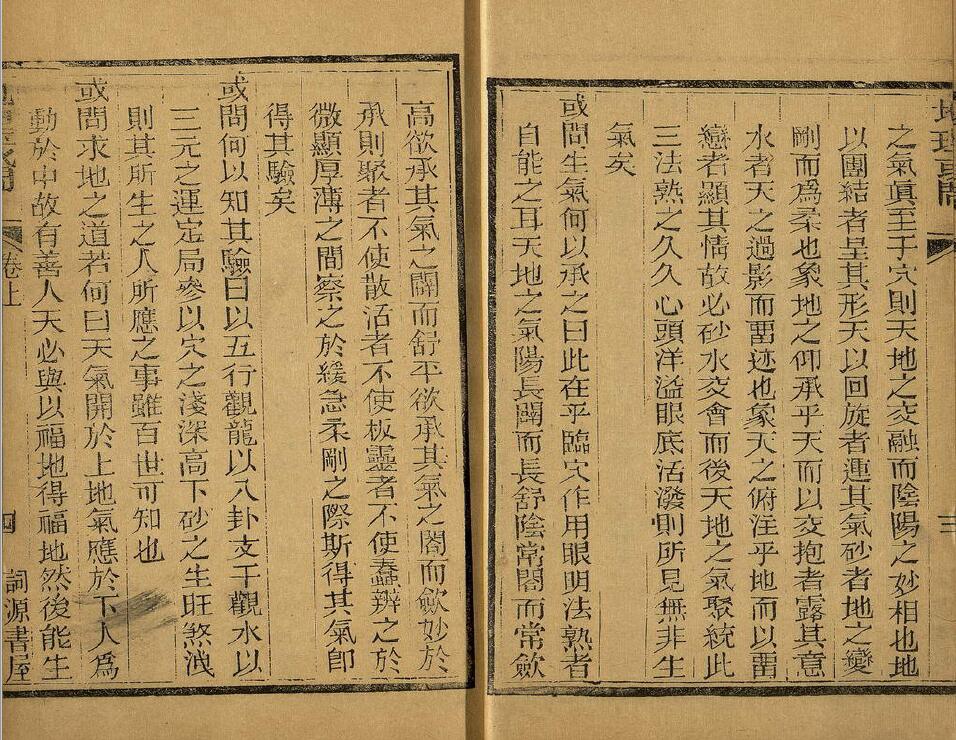 之氣眞至于穴則天地之交融而陰陽之妙相也地
以團結者呈其形天以回旋者運其氣砂者地之變
剛而爲柔也象地之仰承乎天而以交抱者露其意
水者天之過影而畱迹也象天之俯注乎地而以畱
戀者顯其情故必砂水交會而後天地之氣聚統此
三法熟之久久心頭洋溢眼底活潑則所見無非生
氣矣
或問生氣何以承之曰此在乎臨穴作用眼明法熟者
自能之耳天地之氣陽長闢而長舒陰常闔而常歛
三
高欲承其氣之闢而舒平欲承其氣之闔而歛妙於
承則聚者不使散活者不使板靈者不使蠢辨之於
微顯厚薄之間察之於緩急柔剛之際斯得其氣卽
得其驗矣
或問何以知其驗曰以五行觀龍以八卦支干觀水以
三元之運定局參以穴之淺深高下砂之生旺煞洩
則其所生之人所應之事雖百世可知也
或問求地之道若何曰天氣開於上地氣應於下人爲
動於中故有善人天必與以福地得福地然後能生
卷上
四
詞源書屋